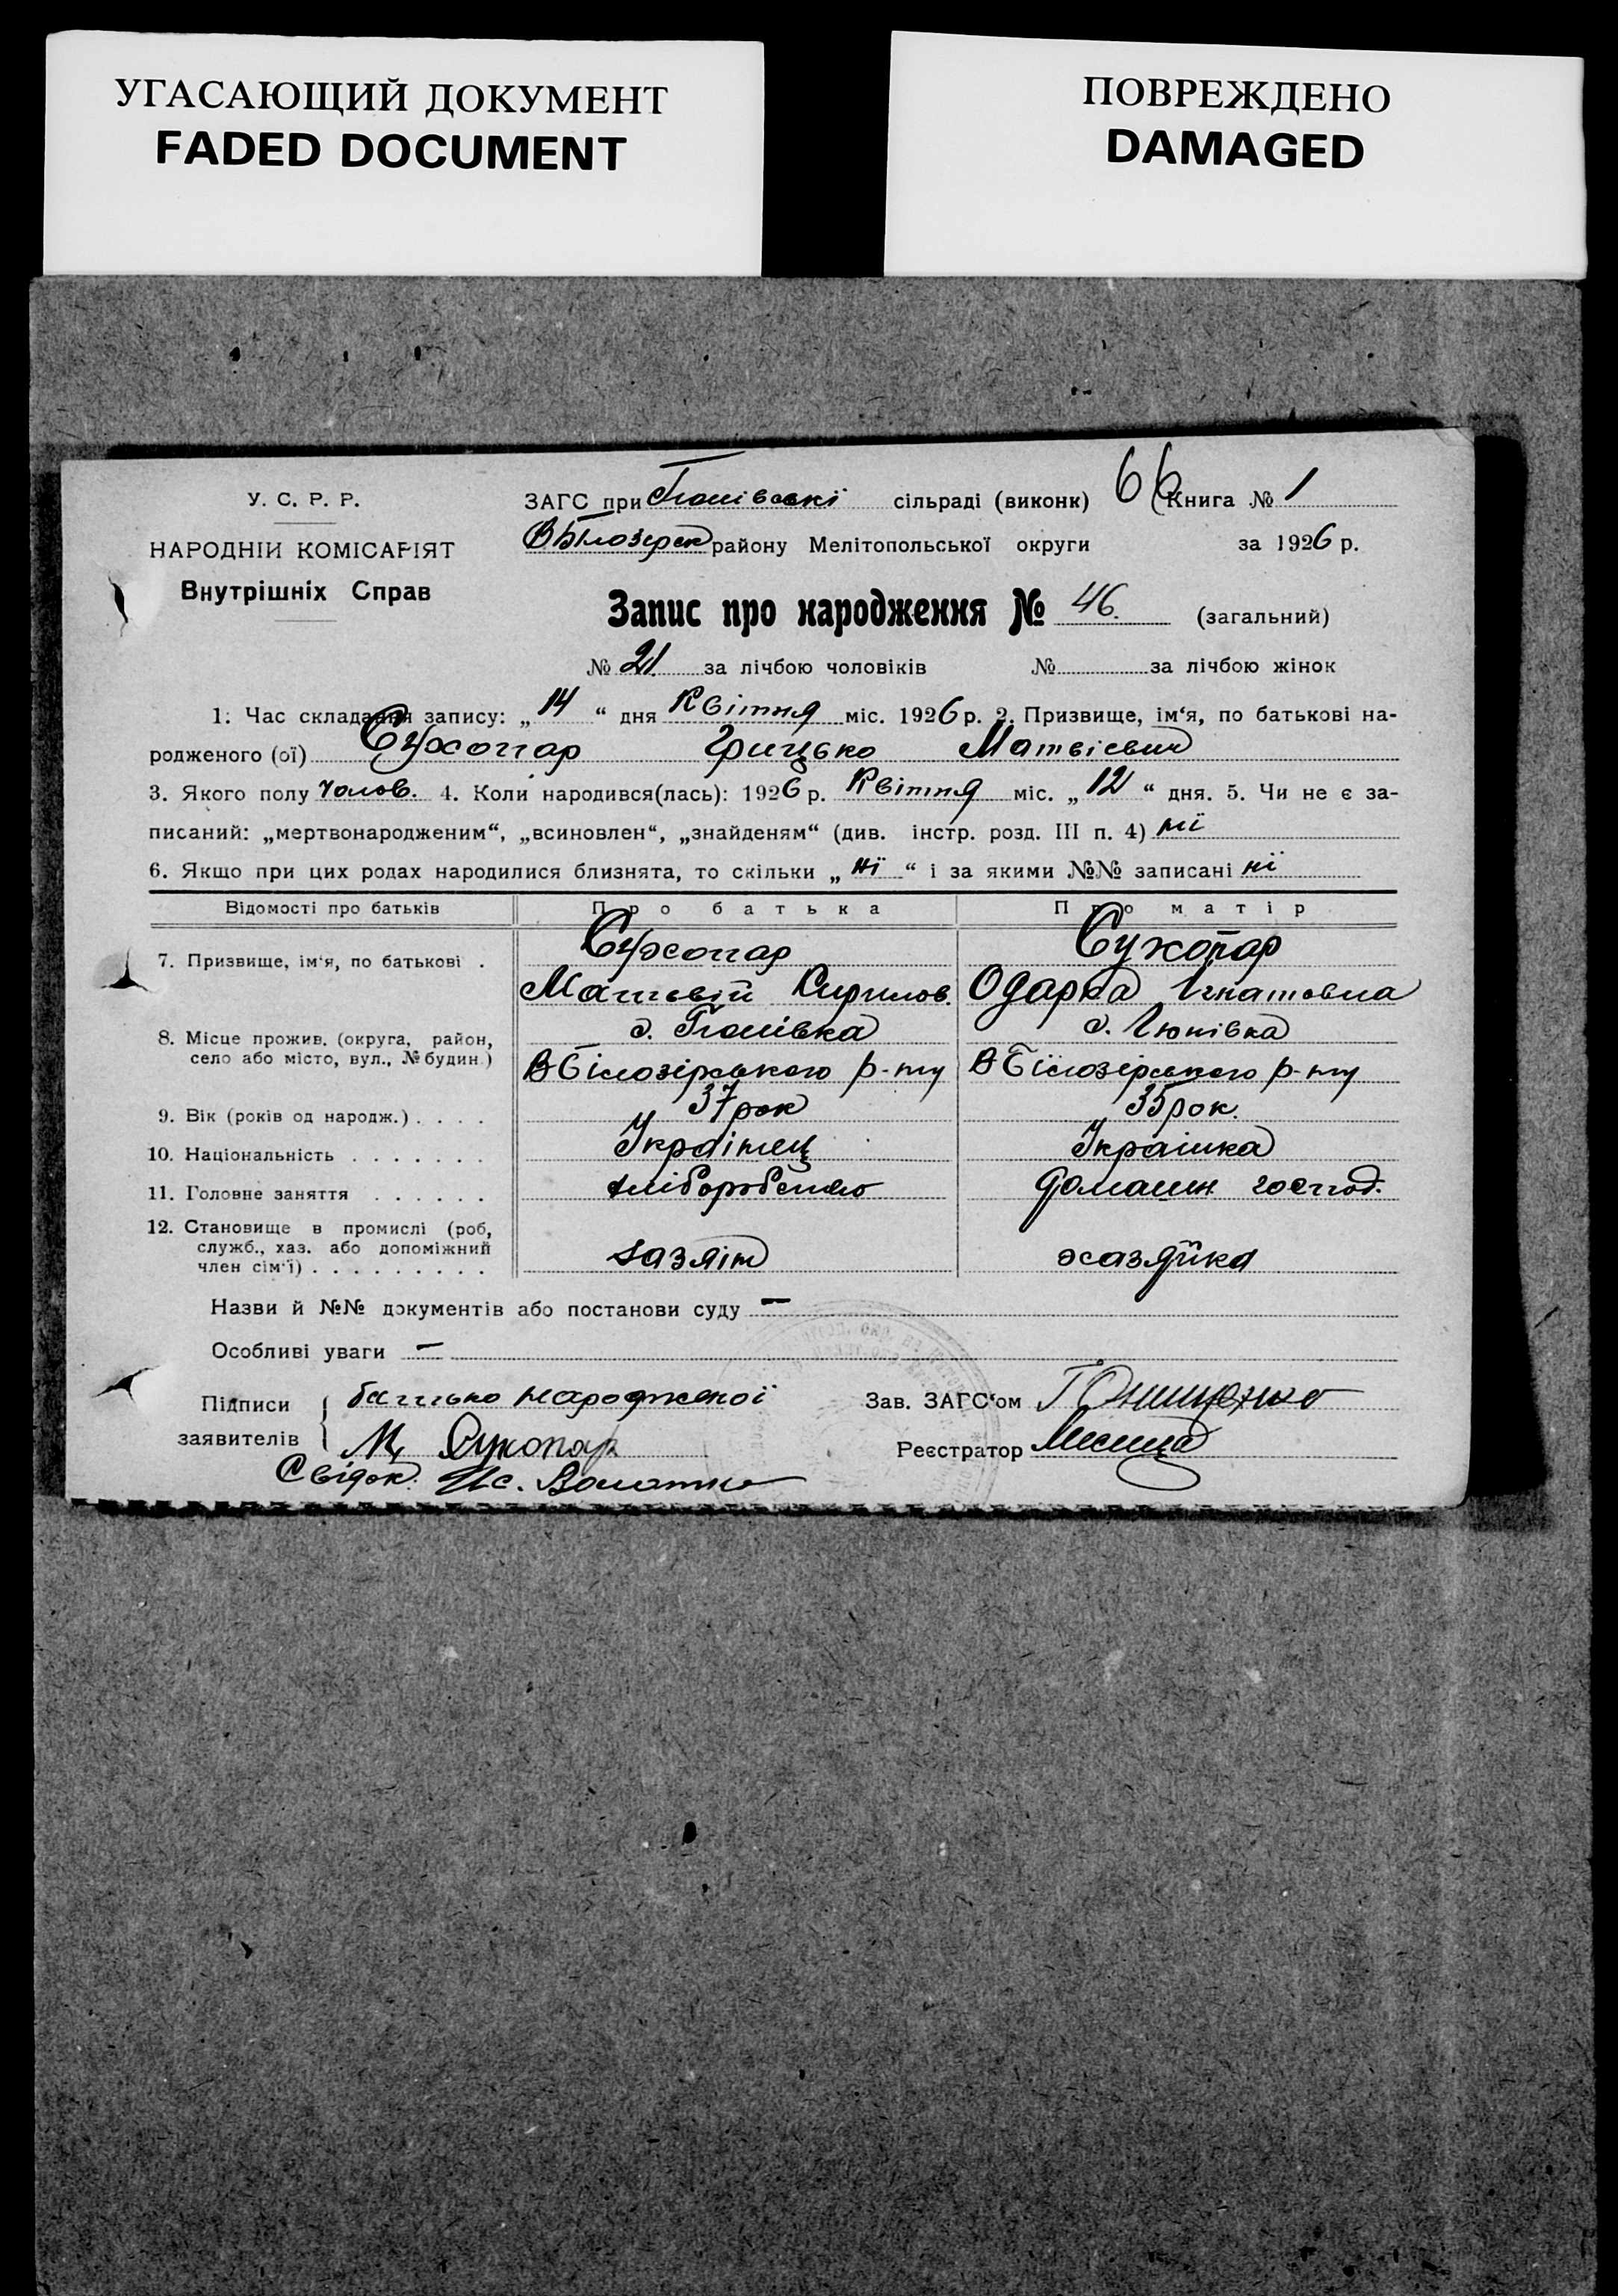 УГАСАЮЩИЙ ДОКУМЕНТ
FADED DOCUMENT
ПОВРЕЖДЕНО
DAMAGED
У. С. Р. Р.
НАРОДНІЙ КОМІСАРІЯТ
Внутрішніх Справ
ЗАГС при сільраді (виконк) 66 Книга № 1
В Білозерск району Мелітопольської округи за 1926 р.
Запис про народження № 46. (загальний)
№ 21. за лічбою чоловіків № за лічбою жінок
1. Час складання запису: „ 14 “ дня Квітня міс. 1926 р. 2. Призвище, ім‘я, по батькові на-
родженого (ої) Сухопар Грицько Матвієвич
3. Якого полу чолов. 4. Коли народився(лась): 1926 р. Квітня міс. „ 12 “ дня. 5. Чи не є за-
писаний: „мертвонародженим“, „всиновлен“, „знайденям“ (див. інстр. розд. III п. 4) ні
6. Якщо при цих родах народилися близнята, то скільки „ ні “ і за якими №№ записані ні
Відомості про батьків Про батька Про матір
7. Призвище, ім‘я, по батькові . Сухопар Сухопар
Матвій Кирилов. Одарка Ігнатовна
8. Місце прожив. (округа, район, село або місто, вул., № будин.) с. с.
В Білозірського р-ну В Білозірського р-ну
9. Вік (років од народж.) . . . . 37 рок 35 рок.
10. Національність . . . . . . . Українец Українка
11. Головне заняття . . . . . . хліборобство домашн. господ.
12. Становище в промислі (роб, служб., хаз. або допоміжний член сім‘ї) . . . . . . . . . хазяїн хазяйка
Назви й №№ документів або постанови суду —
Особливі уваги —
Підписи заявителів { батько народженої
М. Сухопар
Свідок.
Зав. ЗАГС‘ом Г Онищенко
Реєстратор